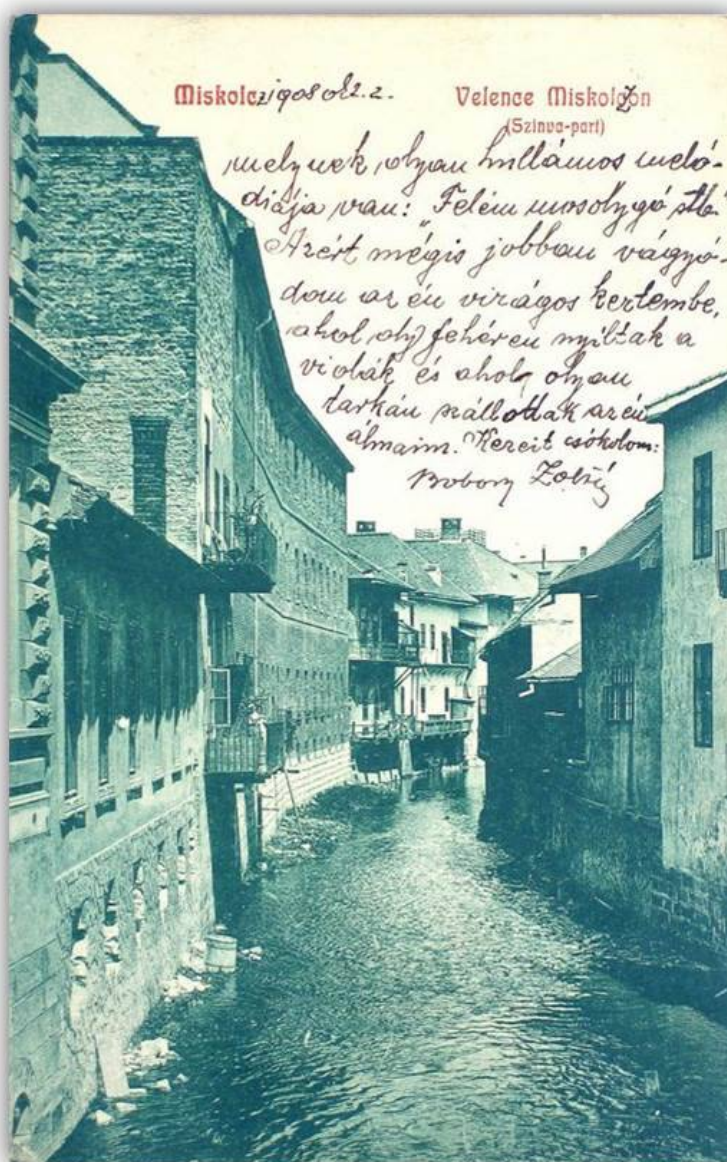 Miskolcz 1908 okt. 2.
Velence Miskolczon
(Szinva-part)
melynek olyan hullámos meló-
diája van: "Felém mosolygó stb.
Azért mégis jobban vágyó-
dom az én virágos kertembe,
ahol oly fehéren nyíltak a
violák és ahol olyan
tarkán szállottak az én
álmaim. Kezeit csókolom:
Bobory